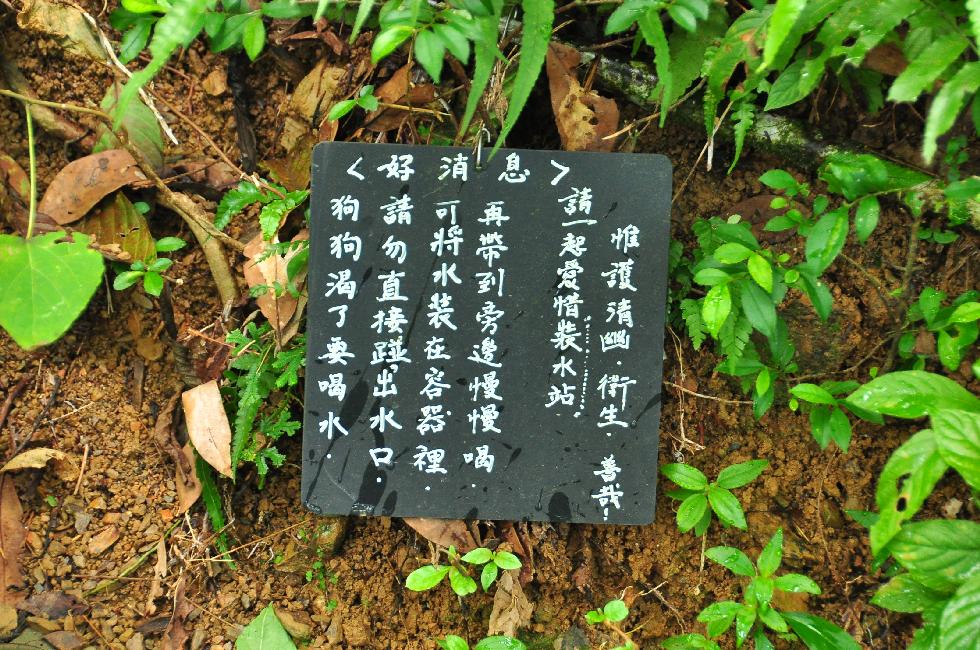 <好消息>
狗狗渴了要喝水.
請勿直接踫出水口.
可將水裝在容器裡.
再帶到旁邊慢慢喝.
請一起愛惜裝水站
惟護清幽.衛生. 善哉!